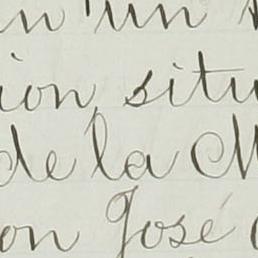 n un
ion, situ
de la M
on José